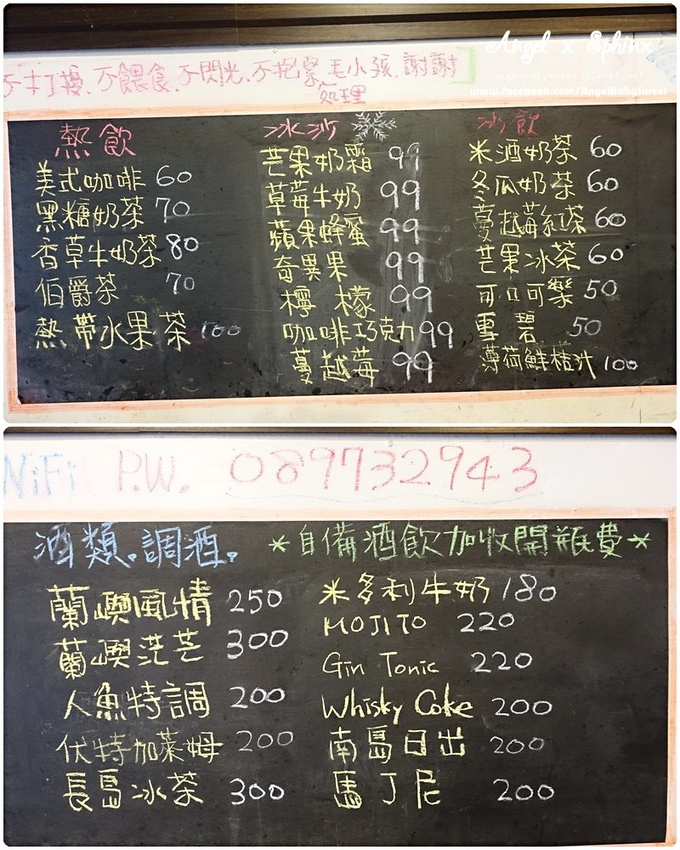 Angel x Sphinx
www.facebook.com/AngelBabySweet
不打擾、不餵食、不閃光、不抱緊毛小孩、謝謝
處理
熱飲
美式咖啡 60
黑糖奶茶 70
香草牛奶茶 80
伯爵茶 70
熱帶水果茶 100
冰沙
芒果奶霜 99
草莓牛奶 99
蘋果蜂蜜 99
奇異果 99
檸檬 99
咖啡巧克力 99
蔓越莓 99
冰飲
米酒奶茶 60
冬瓜奶茶 60
蔓越莓紅茶 60
芒果冰茶 60
可口可樂 50
雪碧 50
薄荷鮮桔汁 100
WiFi P.W. 089732943
酒類。調酒。
*自備酒飲加收開瓶費*
蘭嶼風情 250
蘭嶼茫茫 300
人魚特調 200
伏特加萊姆 200
長島冰茶 300
米多利牛奶 180
MOJITO 220
Gin Tonic 220
Whisky Coke 200
南島日出 200
馬丁尼 200